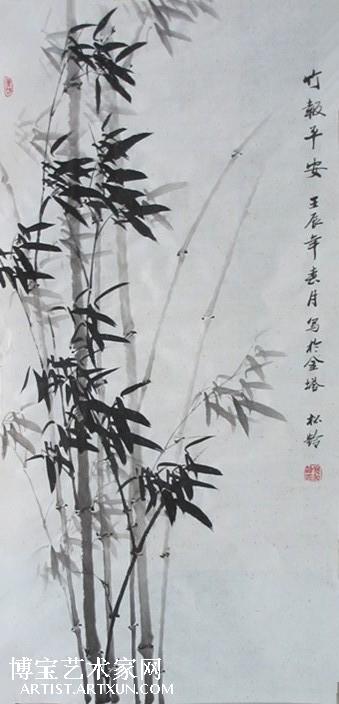 竹報平安 壬辰年春月寫於金塔 松龄
博宝艺术家网
ARTIST.ARTXUN.COM